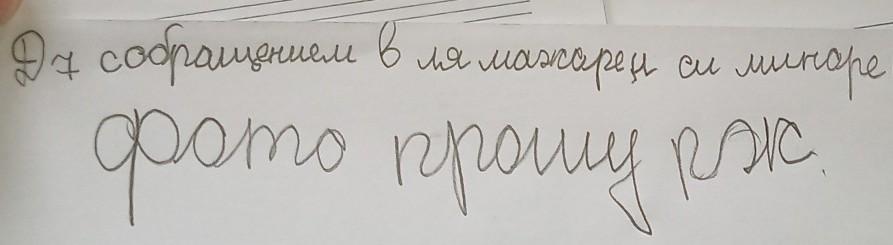 Д7 собращением в ля мажарен си миноре
фото прошу рж.